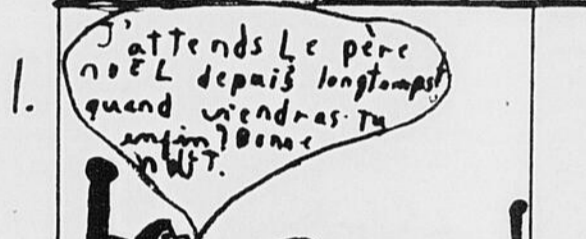 1.
J'attends Le père
noëL depuis longtemps!
quand viendras-tu
enfin? Bonne
nuiT.